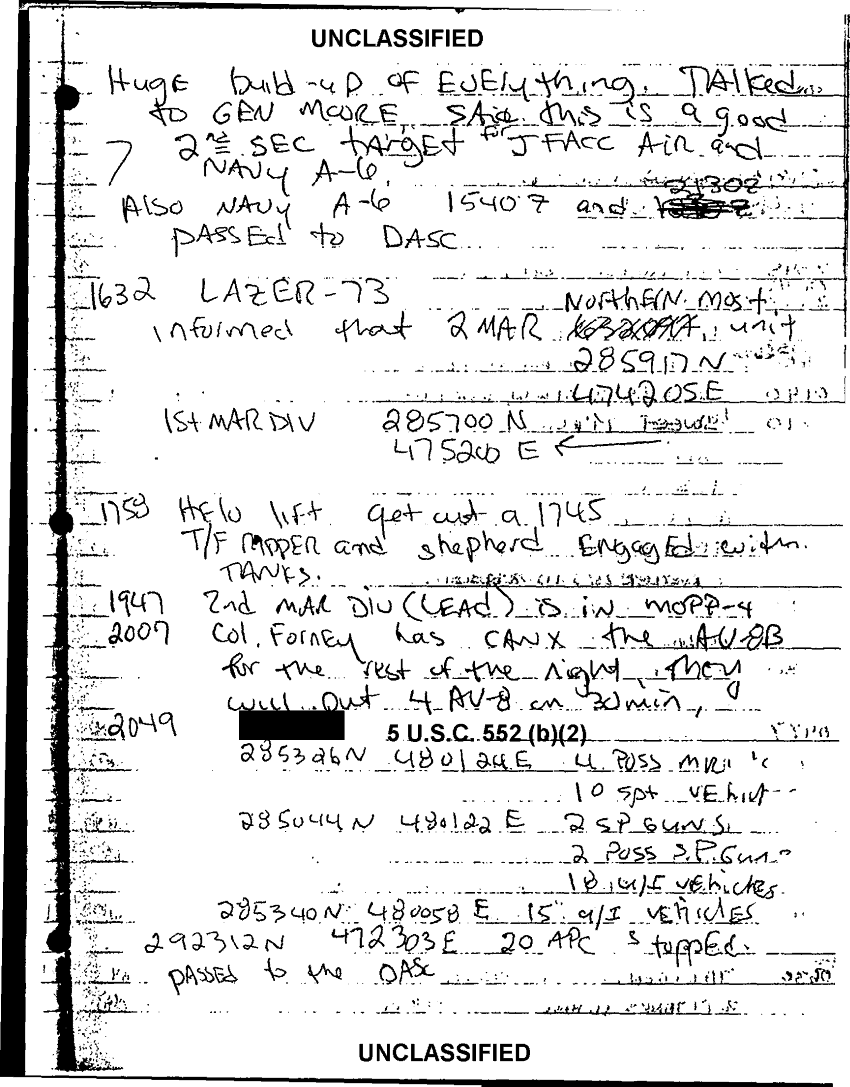 UNCLASSIFIED
Huge build-up of Everything. Talked
to GEN MOORE, said this is a good
7 2nd SEC TARGET for JFACC AIR and
NAVY A-6.
Also NAVY A-6 15407 and 21302
PASSED to DASC
1632 LAZER-73 Northern most
informed that 2 MAR unit
285917N
474205E
1st MAR DIV 285700 N
475200 E
1753 Helo lift get out a 1745
T/F RIPPER and shepherd Engaged with
TANKS.
1947 2nd MAR DIV (LEAD) is in MOPP-4
2007 Col. Forney has CANX the AV-8B
for the rest of the night, they
will put 4 AV-8 on 30 min,
2049 5 U.S.C. 552 (b)(2)
285326N 480124E 4 Poss MRL's
10 spt vehicl
285044N 480122E 2 SP GUNS
2 Poss S.P. Guns
18 u/I vehicles
285340N 480058E 15 u/I vehicles
292312N 472303E 20 APC stopped.
PASSED to the DASC
UNCLASSIFIED